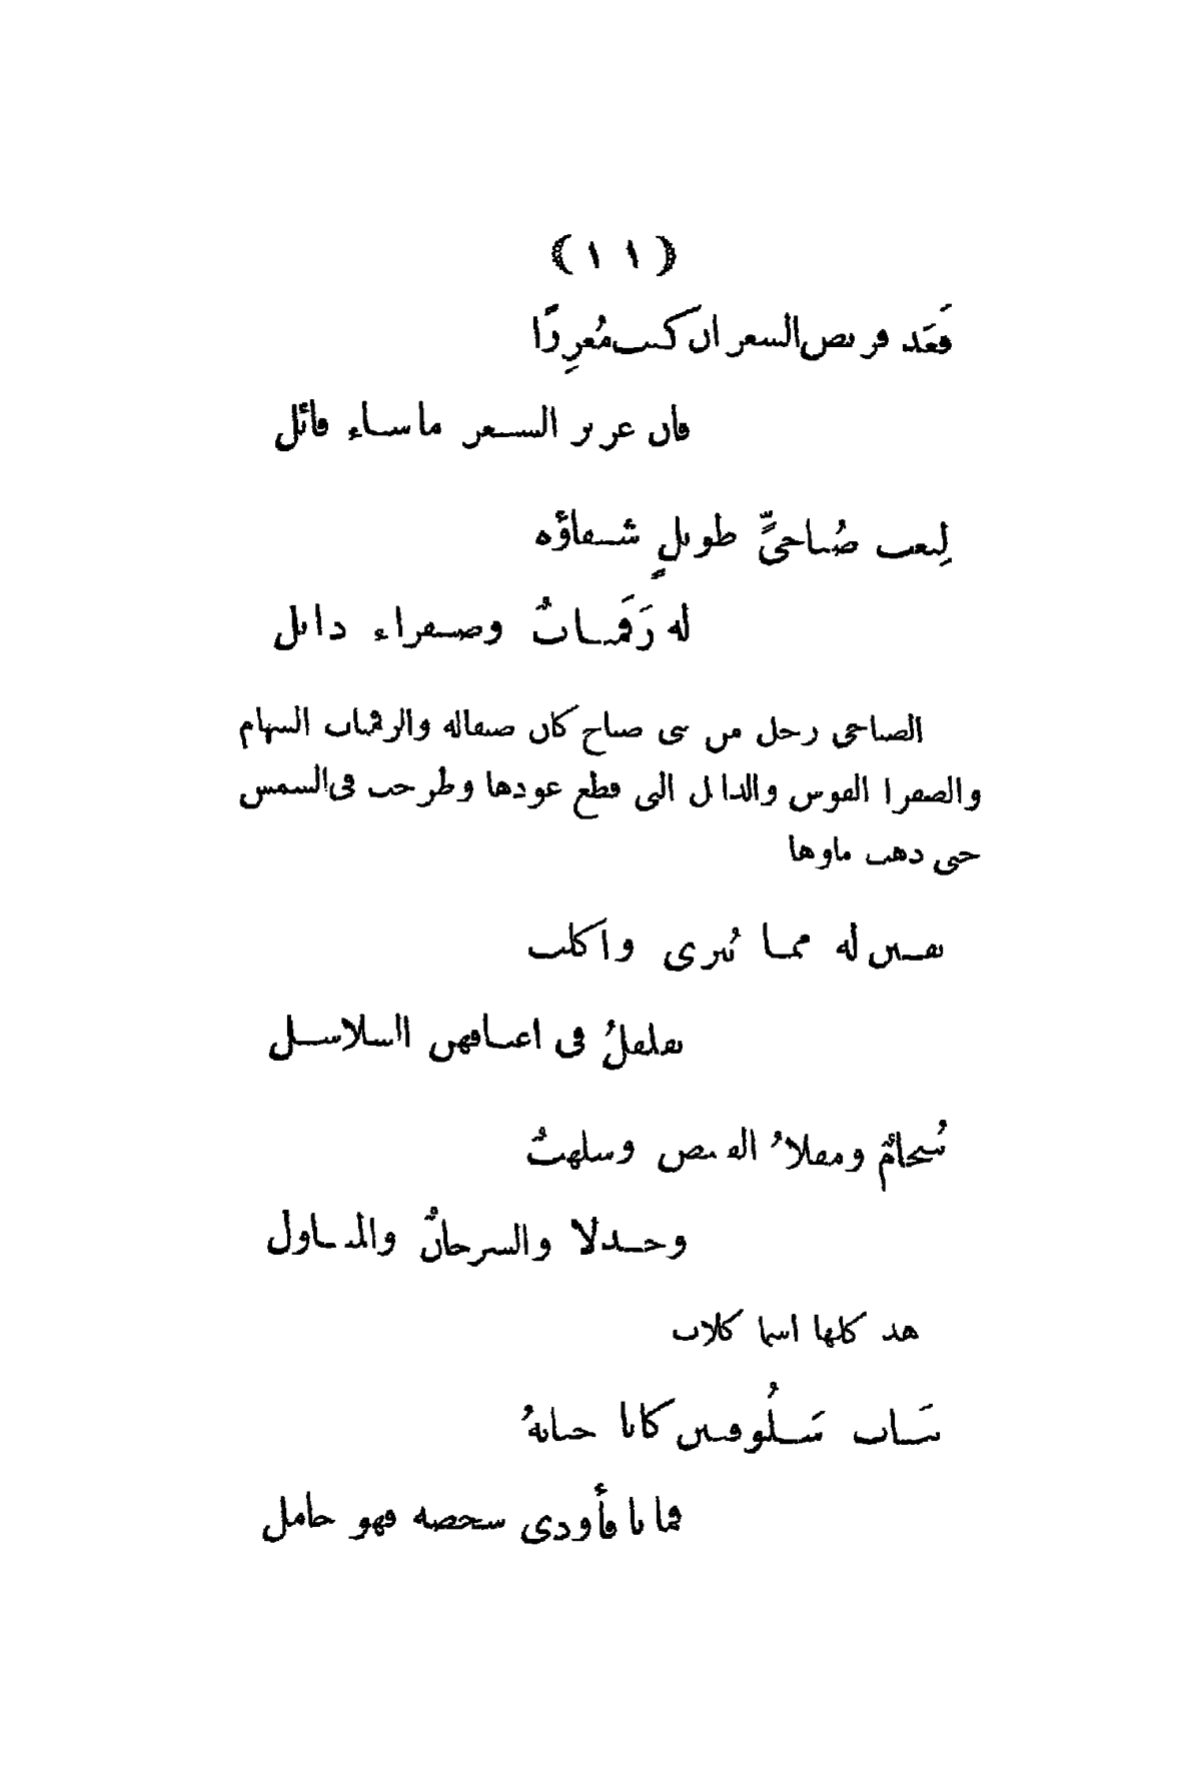 ﴿ ١١ ﴾
فَعَد قريض الشعر ان كنت مُغزِرًا
فان غزير الشعر ما شاء قائل
لِنعت صُباحيٍّ طويلٍ شقاؤه
له رَقَميّاتٌ وصفراء ذابل
الصباحي رجل من بني صباح كان ضفاله والرقميات السهام
والصفرا القوس والذابل التي قطع عودها وطرحت في الشمس
حتى ذهب ماوها
بقين له مما يُبرى واكلب
تقلقلُ في اعناقهن السلاسل
سُخامٌ ومقلاءُ القنيص وسلهبٌ
وجدلا والسرحانُ والمتناول
هذه كلها اسما كلاب
بَنات سَلُوقيين كانا حياتهُ
فماتا فأودى شخصه فهو خامل